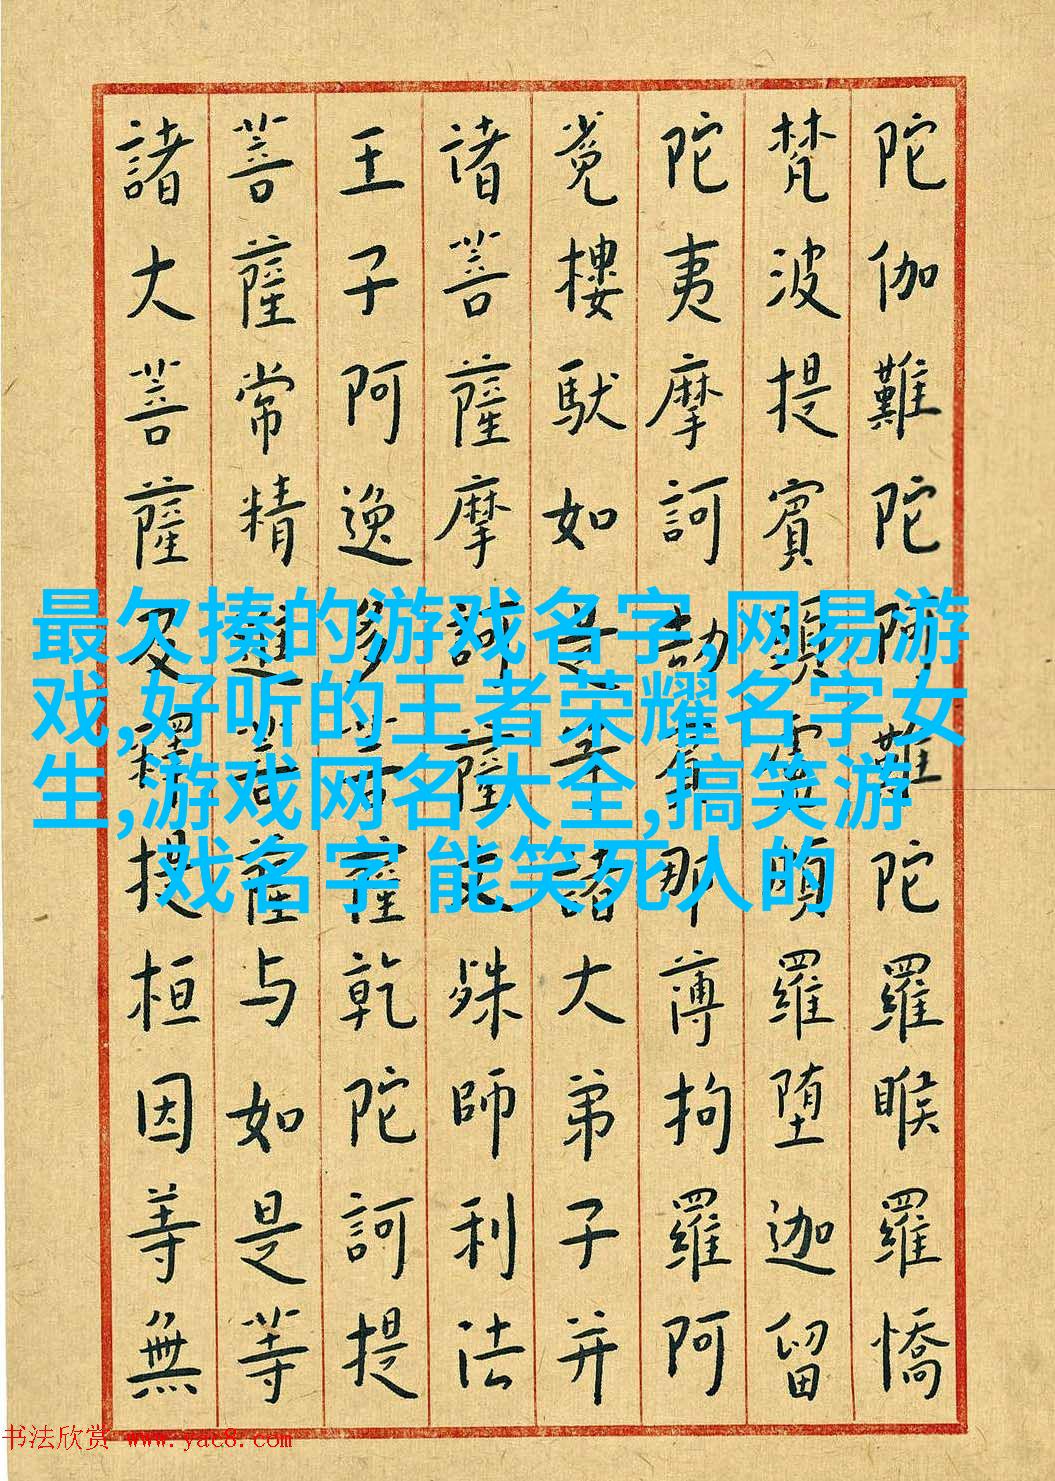 陀伽難陀阿難陀羅睺羅憍
梵波提賓頭盧頗羅堕迦留
陀夷摩訶劫賓那薄拘羅阿
樓馱如是等諸大弟子并
诸菩薩摩訶薩文殊師利法
王子阿逸多菩薩乾陀訶提
菩薩常精進菩薩与如是等
諸大菩薩及釋提桓因等無
最欠揍的游戏名字,网易游
戏,好听的王者荣耀名字女
生,游戏网名大全,搞笑游
戏名字 能笑死人的
书法欣赏 www.yac8.com